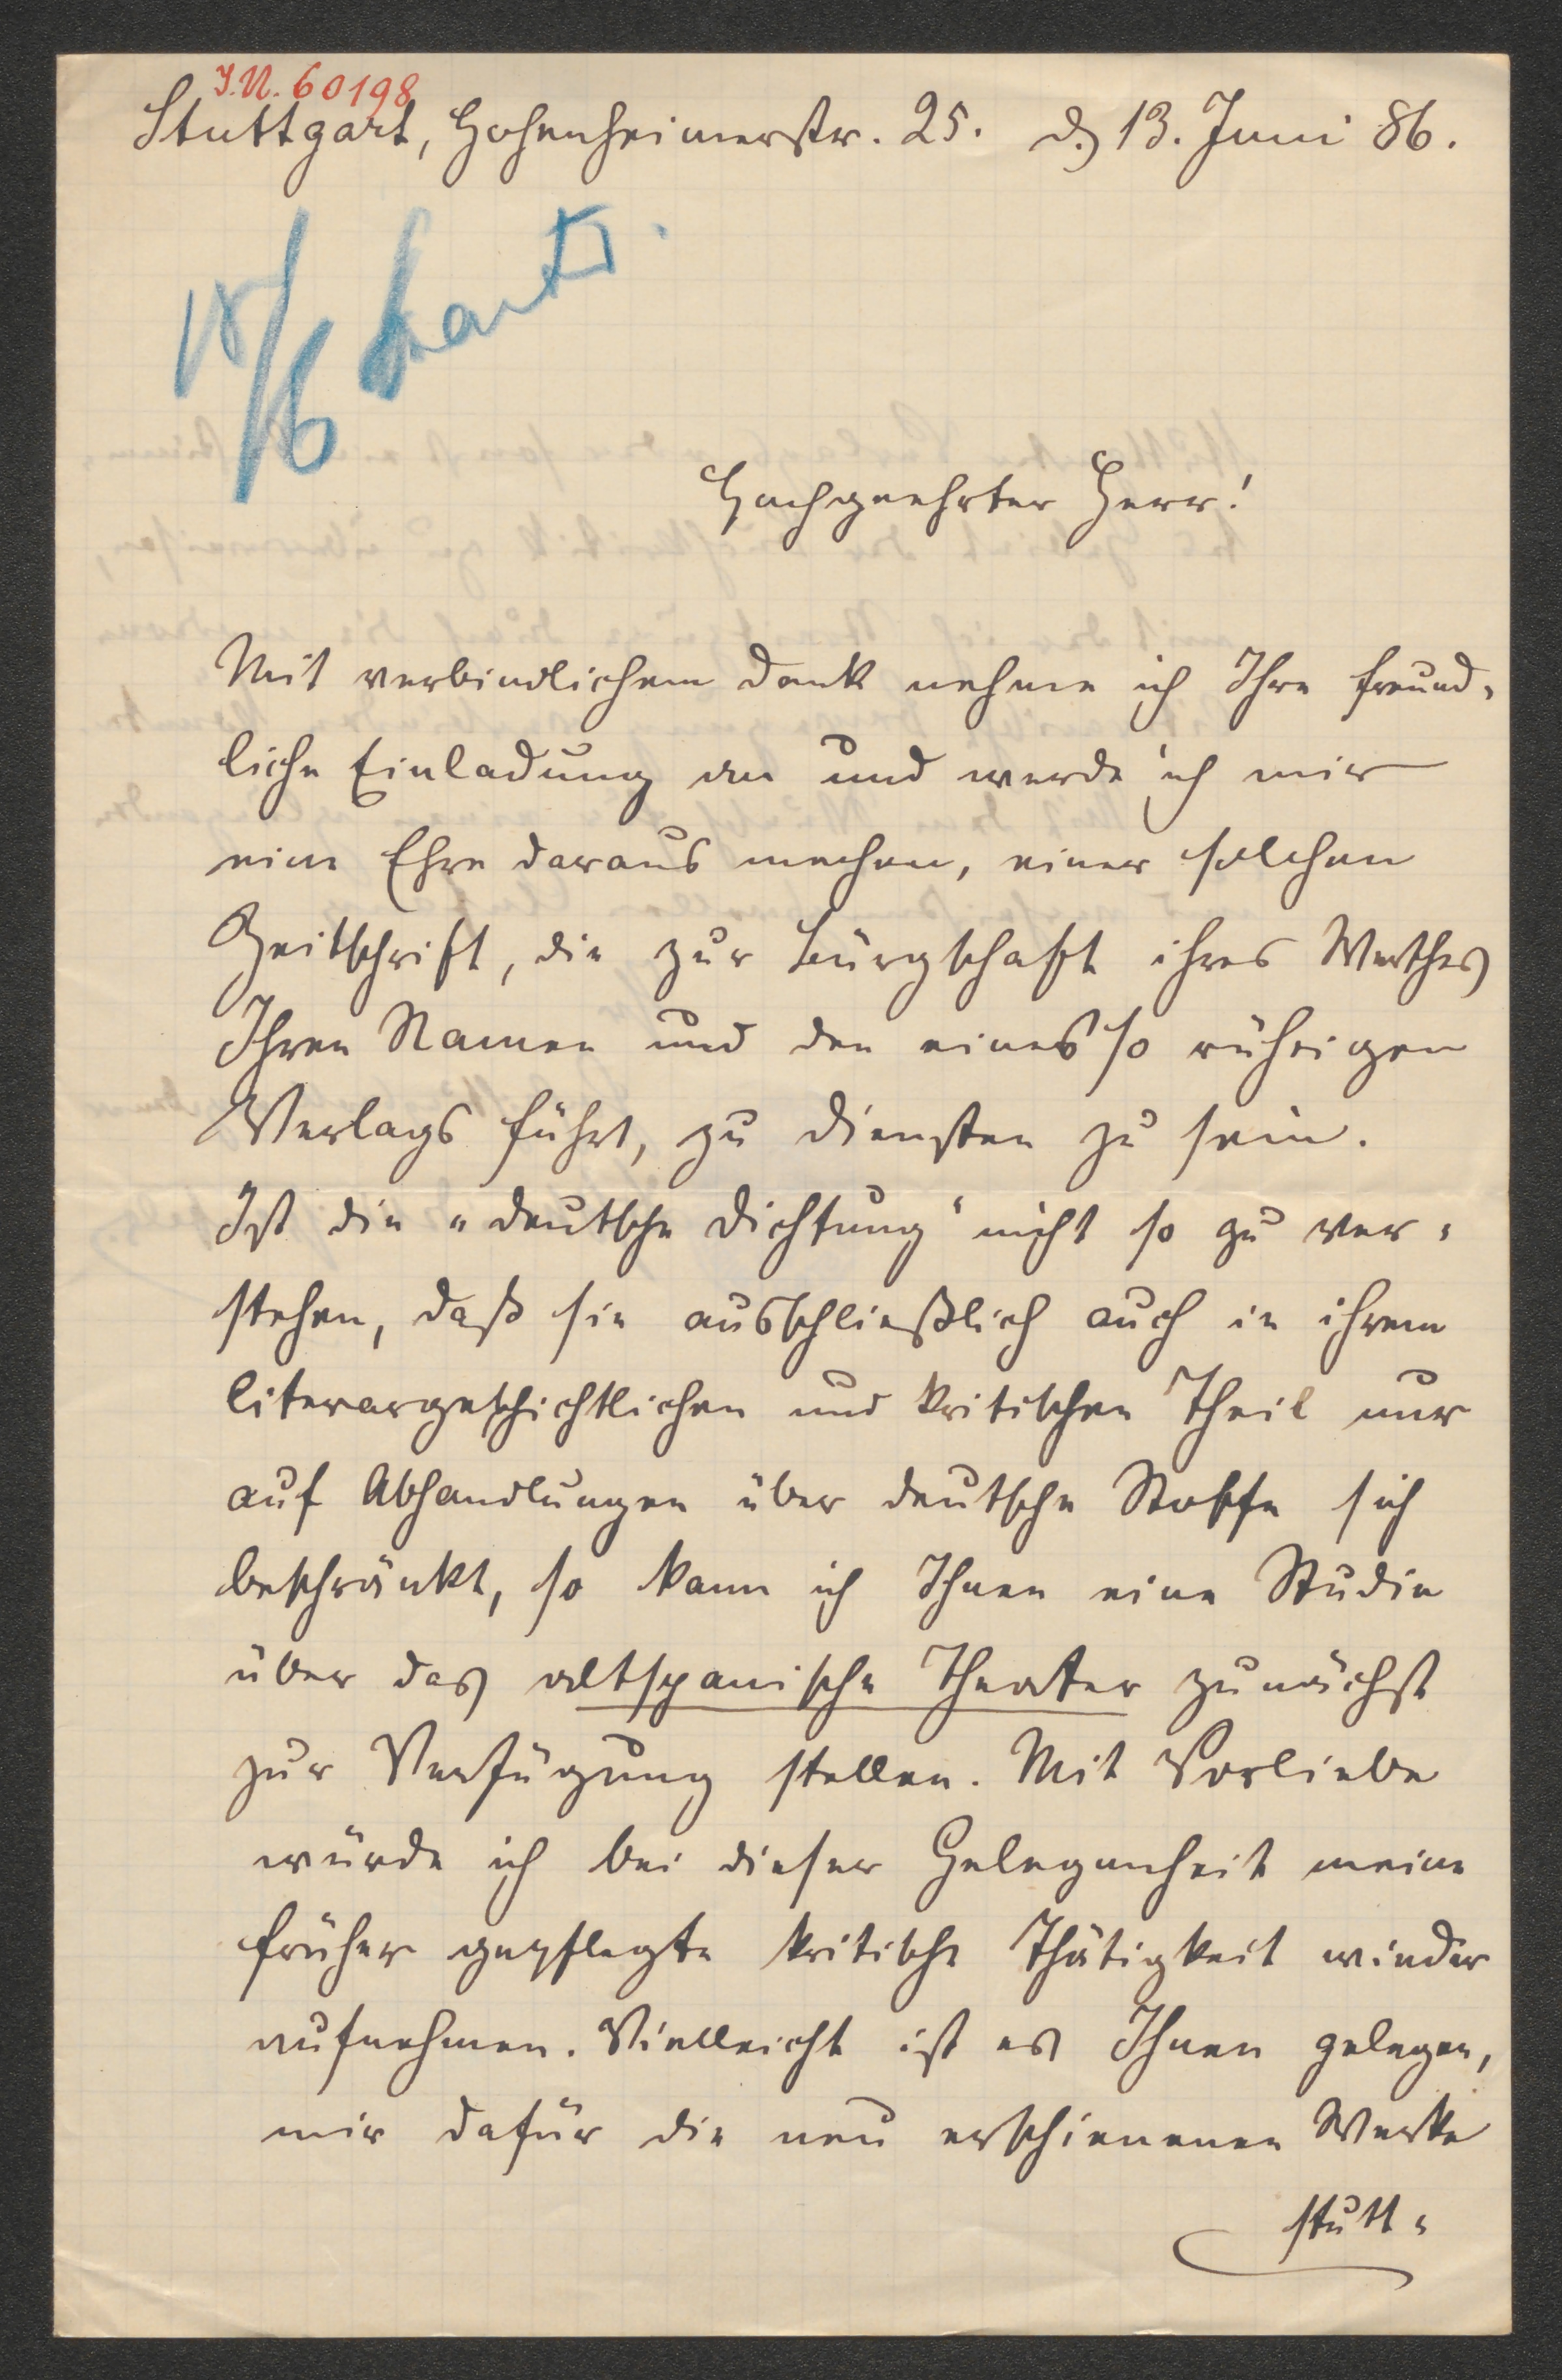 I.N. 60198
Stuttgart, Hohenheimerstr. 25. d. 13. Juni 86.
18/6
Hochgeehrter Herr!
Mit verbindlichem Dank nehme ich Ihre freund-
liche Einladung an und werde ich mir
eine Ehre daraus machen, einer solchen
Zeitschrift, die zur Bürgschaft ihres Werthes
Ihren Namen und den eines so rührigen
Verlags führt, zu Diensten zu sein.
Ist die "deutsche Dichtung" nicht so zu ver-
stehen, daß sie ausschließlich auch in ihrem
literargeschichtlichen und kritischen Theil nur
auf Abhandlungen über deutsche Stoffe sich
beschränkt, so kann ich Ihnen eine Studie
über das altspanische Theater zunächst
zur Verfügung stellen. Mit Vorliebe
würde ich bei dieser Gelegenheit meine
früher gepflegte kritische Thätigkeit wieder
aufnehmen. Vielleicht ist es Ihnen gelegen,
mir dafür die neu erschienenen Werke
stutt-